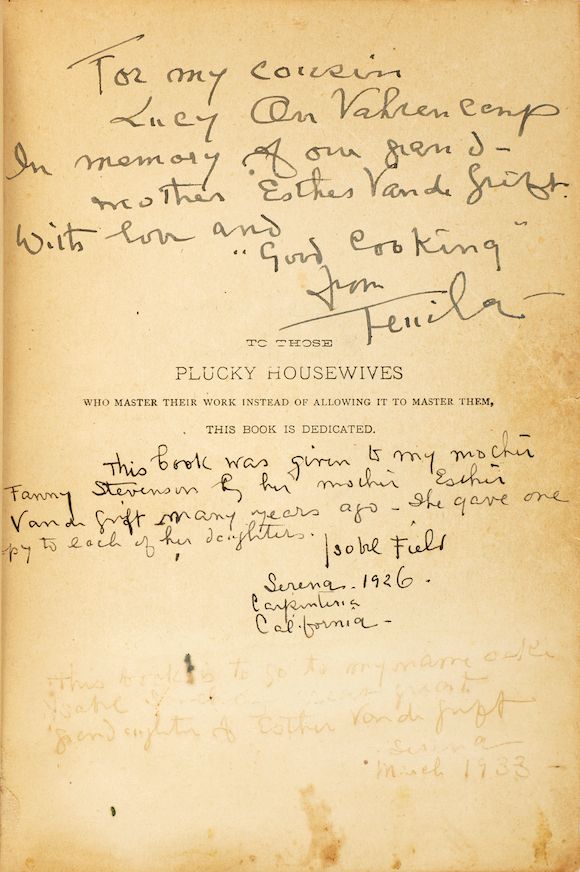 For my cousin
Lucy Orr Vahrencamp
In memory of our grand-
mother Esther Van de Grift.
With love and
"Good Cooking"
from
Teuila
TO THOSE
PLUCKY HOUSEWIVES
WHO MASTER THEIR WORK INSTEAD OF ALLOWING IT TO MASTER THEM,
THIS BOOK IS DEDICATED.
This book was given to my mother
Fanny Stevenson by her mother Esther
Van de Grift many years ago - She gave one
py to each of her daughters.
Isobel Field
Serena. 1926.
Carpinteria
California -
This book is to go to my name sake
Isobel great
Grandaughter of Esther Van de Grift
Serena
March 1933